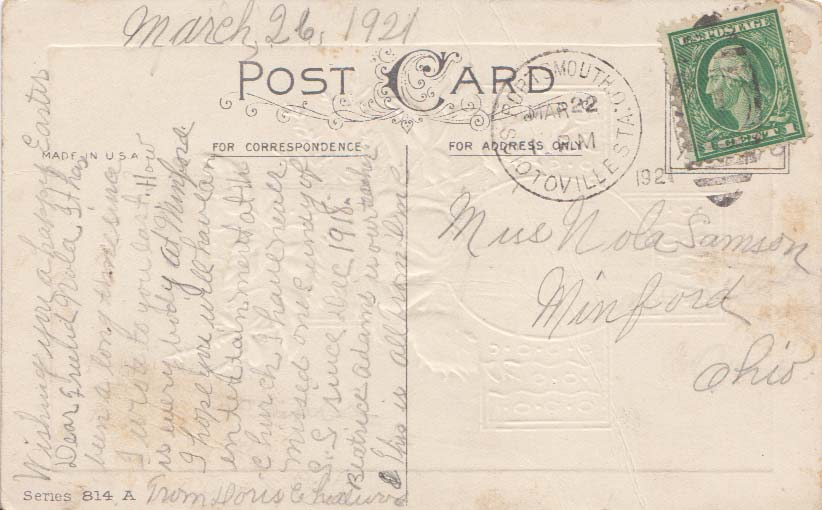 March 26, 1921
POST CARD
MADE IN U.S.A.
FOR CORRESPONDENCE
FOR ADDRESS ONLY
U.S. POSTAGE
1 CENT 1
PORTSMOUTH, O.
MAR 22
PM
1921
SCIOTOVILLE STA.
Miss Nola Samson
Minford
Ohio
Wishing you a happy Easter
Dear Friend Nola It has
been a long time since
I wrote to you last. How
is every body at Minford
I hope you will have an
entertainment at the
church I have never
missed once unday of
S. S. since Dec 1918.
Beatrice adams is our
This is all from me
From Doris
Series 814 A